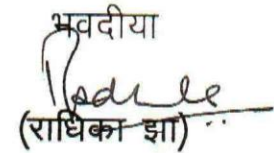 भवदीया
(राधिका झा)